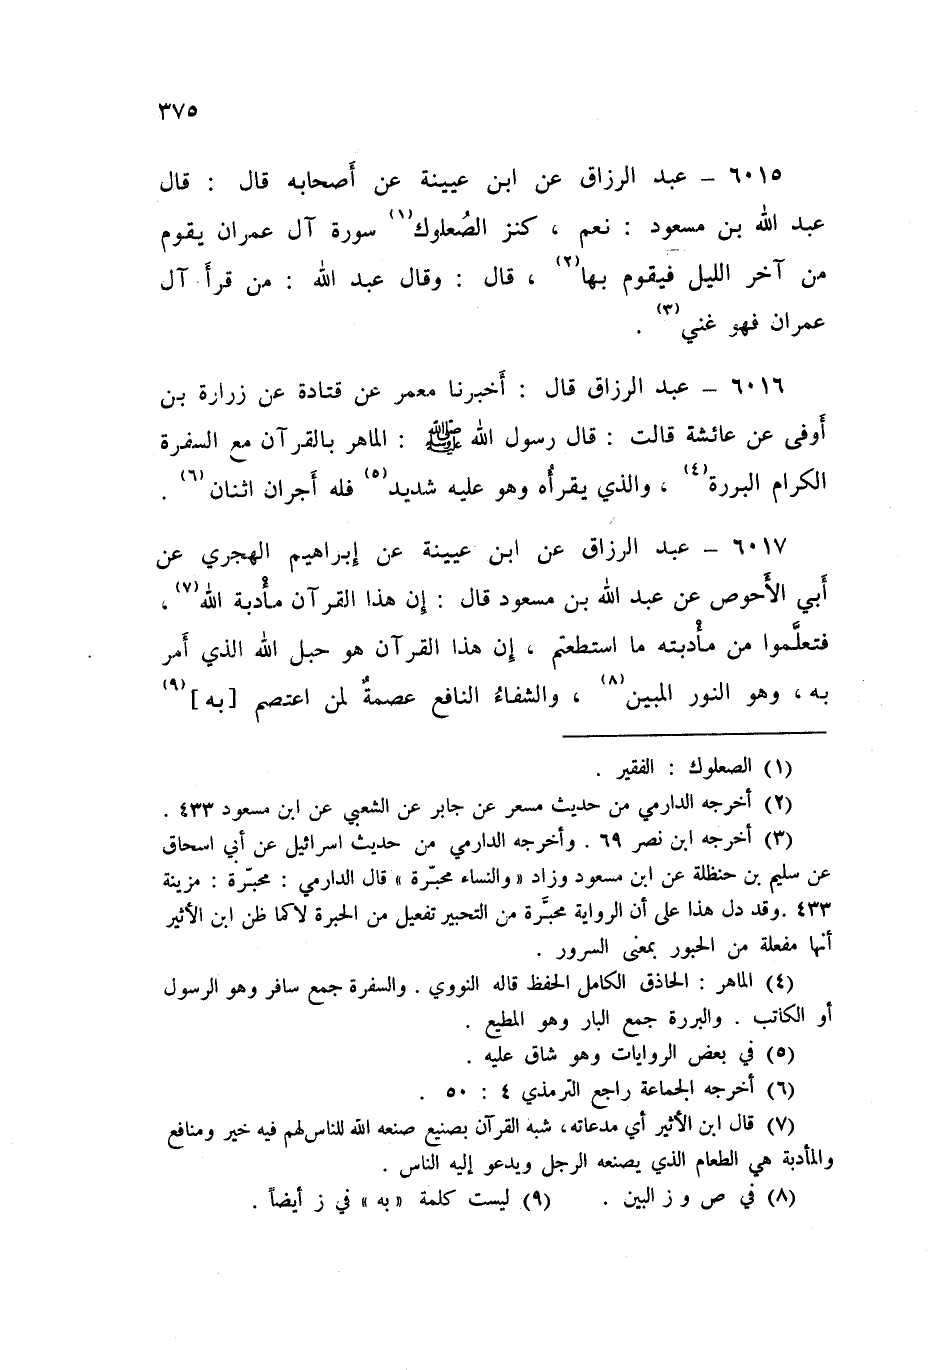 ٣٧٥
٦٠١٥ – عبد الرزاق عن ابن عيينة عن أَصحابه قال : قال
عبد الله بن مسعود : نعم ، كنز الصُعلوك(١) سورة آل عمران يقوم
من آخر الليل فيقوم بها(٢) ، قال : وقال عبد الله : من قرأَ آل
عمران فهو غني(٣) .
٦٠١٦ – عبد الرزاق قال : أَخبرنا معمر عن قتادة عن زرارة بن
أَوفى عن عائشة قالت : قال رسول الله ﷺ : الماهر بالقرآن مع السفرة
الكرام البررة(٤) ، والذي يقرأُه وهو عليه شديد(٥) فله أَجران اثنان(٦) .
٦٠١٧ – عبد الرزاق عن ابن عيينة عن إِبراهيم الهجري عن
أَبي الأَحوص عن عبد الله بن مسعود قال : إِن هذا القرآن مأْدبة الله(٧) ،
فتعلَّموا من مأْدبته ما استطعتم ، إِن هذا القرآن هو حبل الله الذي أَمر
به ، وهو النور المبين(٨) ، والشفاءُ النافع عصمةٌ لمن اعتصم [به](٩)
(١) الصعلوك : الفقير .
(٢) أخرجه الدارمي من حديث مسعر عن جابر عن الشعبي عن ابن مسعود ٤٣٣ .
(٣) أخرجه ابن نصر ٦٩ . وأخرجه الدارمي من حديث اسرائيل عن أبي اسحاق
عن سليم بن حنظلة عن ابن مسعود وزاد « والنساء محبّرة » قال الدارمي : محبّرة : مزينة
٤٣٣ .وقد دل هذا على أن الرواية محبَّرة من التحبير تفعيل من الحبرة لا كما ظن ابن الأثير
أنها مفعلة من الحبور بمعنى السرور .
(٤) الماهر : الحاذق الكامل الحفظ قاله النووي . والسفرة جمع سافر وهو الرسول
أو الكاتب . والبررة جمع البار وهو المطيع .
(٥) في بعض الروايات وهو شاق عليه .
(٦) أخرجه الجماعة راجع الترمذي ٤ : ٥٠ .
(٧) قال ابن الأثير أي مدعاته، شبه القرآن بصنيع صنعه الله للناس لهم فيه خير ومنافع
والمأدبة هي الطعام الذي يصنعه الرجل ويدعو إليه الناس .
(٨) في ص و ز البين . (٩) ليست كلمة « به » في ز أيضاً .